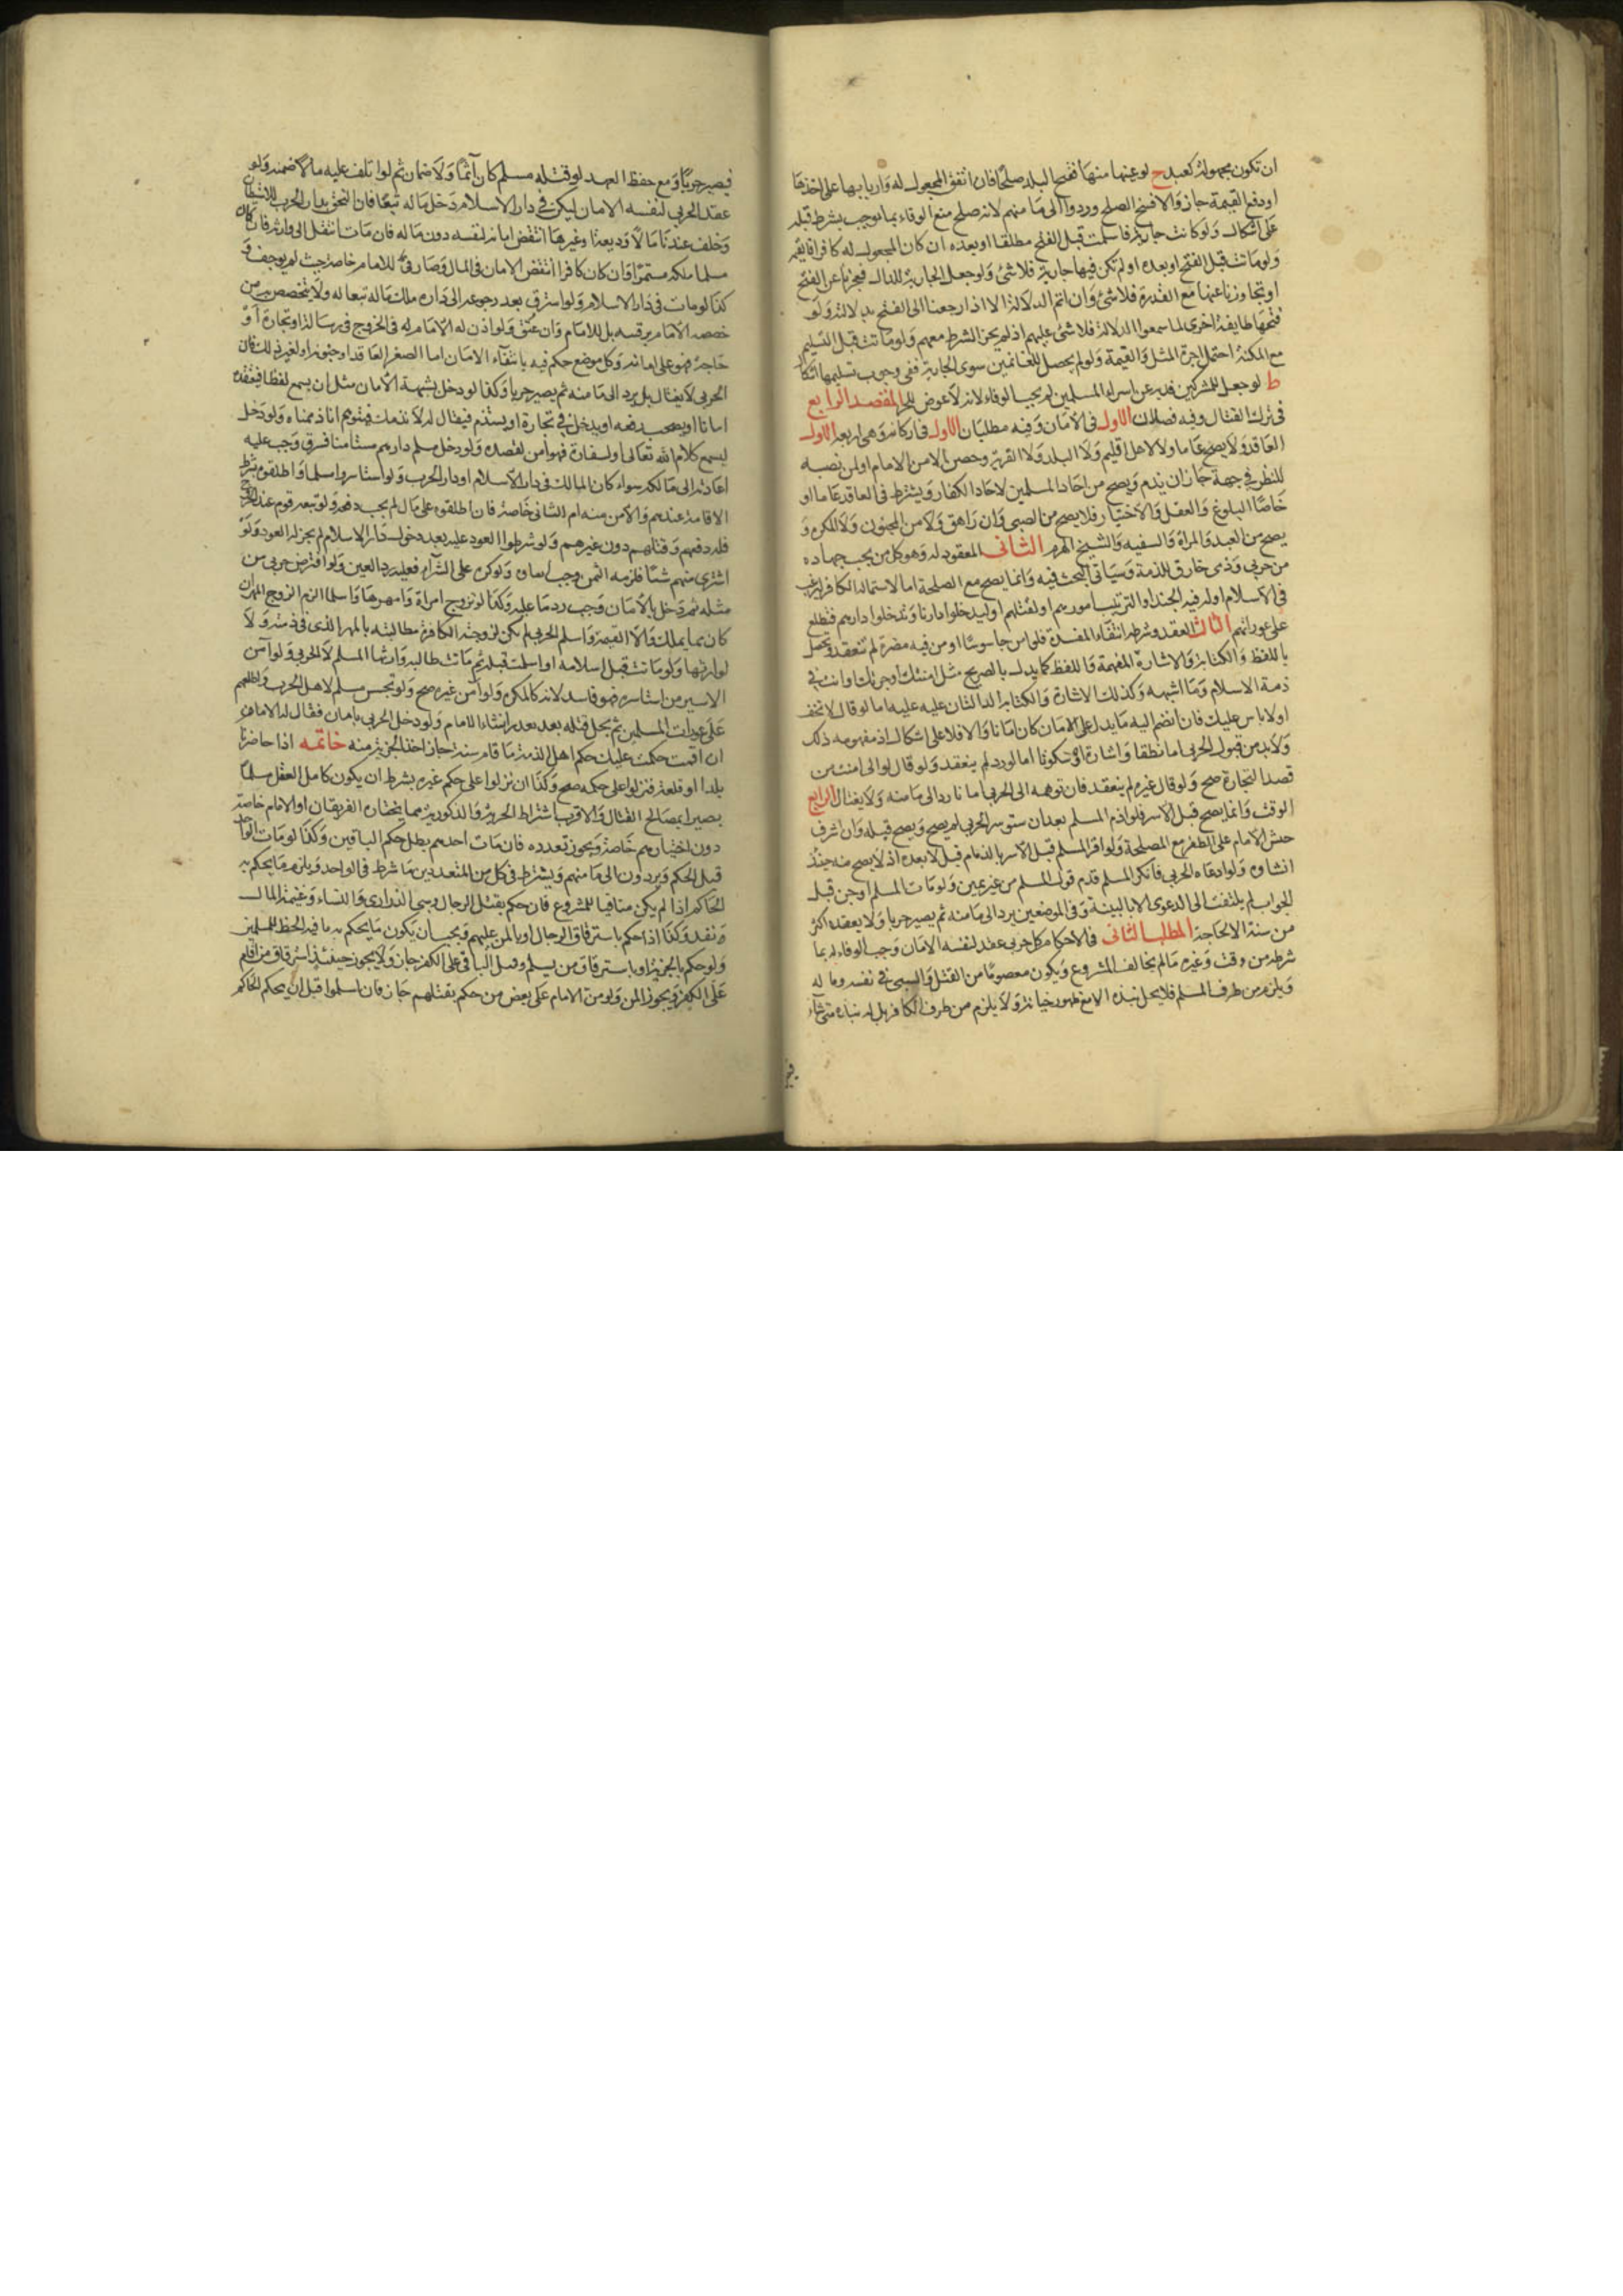 ان تكون مجهولة كعبد ح لو عينها منها ففتح البلد صلحا فان اتفق المجعول له واربابها على اخذها
او دفع القيمة جاز والا فسخ الصلح وردوا الى مامنهم لانه صلح منع الوفاء بما يوجب بشرط قبله
على اشكال ولو كانت جارية فاسلمت قبل الفتح مطلقا او بعده ان كان المجعول له كافرا فالقيمة
ولو ماتت قبل الفتح او بعده او لم تكن فيها جارية فلا شئ ولو جعل الجارية للدال فعجزنا عن الفتح
او تجاوزنا عنها مع القدرة فلا شئ وان اتم الدلالة الا اذا رجعنا الى الفتح بدلالته ولو
فتحها طايفة اخرى لما سمعوا الدلالة فلا شئ عليهم اذ لم يجز الشرط معهم ولو ماتت قبل التسليم
مع المكنة احتمل اجرة المثل والقيمة ولو لم يحصل للغانمين سوى الجارية ففي وجوب تسليمها اشكال
ط لو جعل للمشركين فدية عن اسراء المسلمين لم يجب الوفاء لانه لا عوض للحر المقصد الرابع
في ترك القتال وفيه فصلان الاول في الامان وفيه مطلبان الاول في اركانه وهي اربعة الاول
العاقد ولا يصح عاما ولا لاهل اقليم ولا البلد ولا القرية وحصن الا من الامام او لمن نصبه
للنظر في جهة جاز ان يذم ويصح من احاد المسلمين لاحاد الكفار ويشترط في العاقد عاما او
خاصا البلوغ والعقل والاختيار فلا يصح من الصبي وان راهق ولا من المجنون ولا المكره و
يصح من العبد والمراة والسفيه والشيخ الهرم الثاني المعقود له وهو كل من يجب جهاده
من حربي وذمي خارق للذمة وسياتي البحث فيه وانما يصح مع المصلحة اما لاستمالة الكافر ليرغب
في الاسلام او لترفيه الجند او لترتيب امورهم او لقتلهم او ليدخلوا دارنا وندخل دارهم فنطلع
على عوراتهم الثالث العقد وشرطه انتفاء المفسدة فلو امن جاسوسا او من فيه مضرة لم ينعقد ويحصل
باللفظ والكتابة والاشارة المفهمة واللفظ كما يدل بالصريح مثل امنتك واجرتك وانت في
ذمة الاسلام وما اشبهه وكذلك الاشارة والكتابة الدالتان عليه عليه اما لو قال لا تخف
او لا باس عليك فان انضم اليه ما يدل على الامان كان امانا والا فلا على اشكال اذ مفهومه ذلك
ولا بد من قبول الحربي اما نطقا او اشارة او سكوتا اما لو رد لم ينعقد ولو قال لوالي امنت من
قصد التجارة صح ولو قال غيره لم ينعقد فان توهمه الحربي امانا رد الى مامنه ولا يغتال الرابع
الوقت وانما يصح قبل الاسر فلو اذم المسلم بعد ان استوسر الحربي لم يصح ويصح قبله وان اشرف
جيش الامام على الظفر مع المصلحة ولو اقر المسلم قبل الاسر بالذمام قبل لا بعده اذ لا يصح منه حينئذ
انشاوه ولو ادعاه الحربي فانكر المسلم قدم قول المسلم من غير يمين ولو مات المسلم او جن قبل
الجواب لم يلتفت الى الدعوى الا بالبينة وفي الموضعين يرد الى مامنه ثم يصير حربا ولا يعقد اكثر
من سنة الا لحاجة المطلب الثاني في الاحكام كل حربي عقد لنفسه الامان وجب الوفاء له بما
شرطه من وقت وغيره ما لم يخالف المشروع ويكون معصوما من القتل والسبي في نفسه وماله
ويلزم من طرف المسلم فلا يحل نبذه الا مع ظهور خيانة ولا يلزم من طرف الكافر بل له نبذه متى شاء
فيصير حربيا ومع حفظ العهد لو قتله مسلم كان آثما ولا ضمان ثم لو اتلف عليه مالا ضمنه ولو
عقد الحربي لنفسه الامان ليسكن في دار الاسلام دخل ماله تبعا فان التحق بدار الحرب للاستيطان
وخلف عندنا مالا وديعة وغيرها انتقض امانه لنفسه دون ماله فان مات انتقل الى وارثه فان كان
مسلما ملكه مستمرا وان كان كافرا انتقض الامان في المال وصار فيئا للامام خاصة حيث لم يوجف و
كذا لو مات في دار الاسلام ولو استرق بعد رجوعه الى داره ملك ماله تبعا له ولا يتخصص به من
خصصه الامام برقبته بل للامام وان عتق ولو اذن له الامام في الخروج في رسالة او تجارة او
حاجة فهو على امانه وكل موضع حكم فيه بانتفاء الامان اما لصغر العاقد او جنونه او لغير ذلك فان
الحربي لا يغتال بل يرد الى مامنه ثم يصير حربا وكذا لو دخل بشبهة الامان مثل ان يسمع لفظا فيعتقده
امانا او يصحب رفقة او يدخل في تجارة او يستذم فيقال له لا نذمك فيتوهم انا اذممناه ولو دخل
ليسمع كلام الله تعالى او لسفارة فهو آمن لقصده ولو دخل مسلم دارهم مستامنا فسرق وجب عليه
اعادته الى مالكه سواء كان المالك في دار الاسلام او دار الحرب ولو استاسروا مسلما واطلقوه بشرط
الاقامة عندهم والامن منه ام الثاني خاصة فان اطلقوه على مال لم يجب دفعه ولو تبعه قوم عند الخروج
فله دفعهم وقتالهم دون غيرهم ولو شرطوا العود عليه بعد دخول دار الاسلام لم يجز له العود ولو
اشترى منهم شيئا فلزمه الثمن وجب انفاذه ولو اكره على الشراء فعليه رد العين ولو اقترض حربي من
مثله ثم دخل بالامان وجب رد ما عليه وكذا لو تزوج امراة وامهرها واسلما الزم الزوج المهر ان
كان مما يملك والا القيمة ولو اسلم الحربي لم يكن لزوجته الكافرة مطالبته بالمهر الذي في ذمته ولا
لوارثها ولو ماتت قبل اسلامه او اسلمت قبله ثم ماتت طالبه وارثها المسلم لا الحربي ولو آمن
الاسير من استاسره فهو فاسد لانه كالمكره ولو آمن غيره صح ولو تجسس مسلم لاهل الحرب واطلعهم
على عورات المسلمين لم يحل قتله بل يعزر ان شاء الامام ولو دخل الحربي بامان فقال له الامام
ان اقمت حكمت عليك حكم اهل الذمة فاقام سنة جاز اخذ الجزية منه خاتمة اذا حاصرنا
بلدا او قلعة فنزلوا على حكمه صح وكذا ان نزلوا على حكم غيره بشرط ان يكون كامل العقل مسلما
بصيرا بمصالح القتال والاقرب اشتراط الحرية والذكورية مما يختاره الفريقان او الامام خاصة
دون اختيارهم خاصة ويجوز تعدده فان مات احدهم بطل حكم الباقين وكذا لو مات الواحد
قبل الحكم ويردون الى مامنهم ويشترط في كل من المتعددين ما شرط في الواحد ويلزم ما يحكم به
الحاكم اذا لم يكن منافيا للمشروع فان حكم بقتل الرجال وسبي الذراري والنساء وغنيمة المال
ونفذ وكذا اذا حكم باسترقاق الرجال او بالمن عليهم ويجب ان يكون ما يحكم به ما فيه الحظ للمسلمين
ولو حكم بالجزية او باسترقاق من يسلم وقتل الباقي على الكفر جاز ولا يجوز حينئذ استرقاق من اقام
على الكفر ويجوز المن ولو من الامام على بعض من حكم بقتلهم جاز فان اسلموا قبل ان يحكم الحاكم